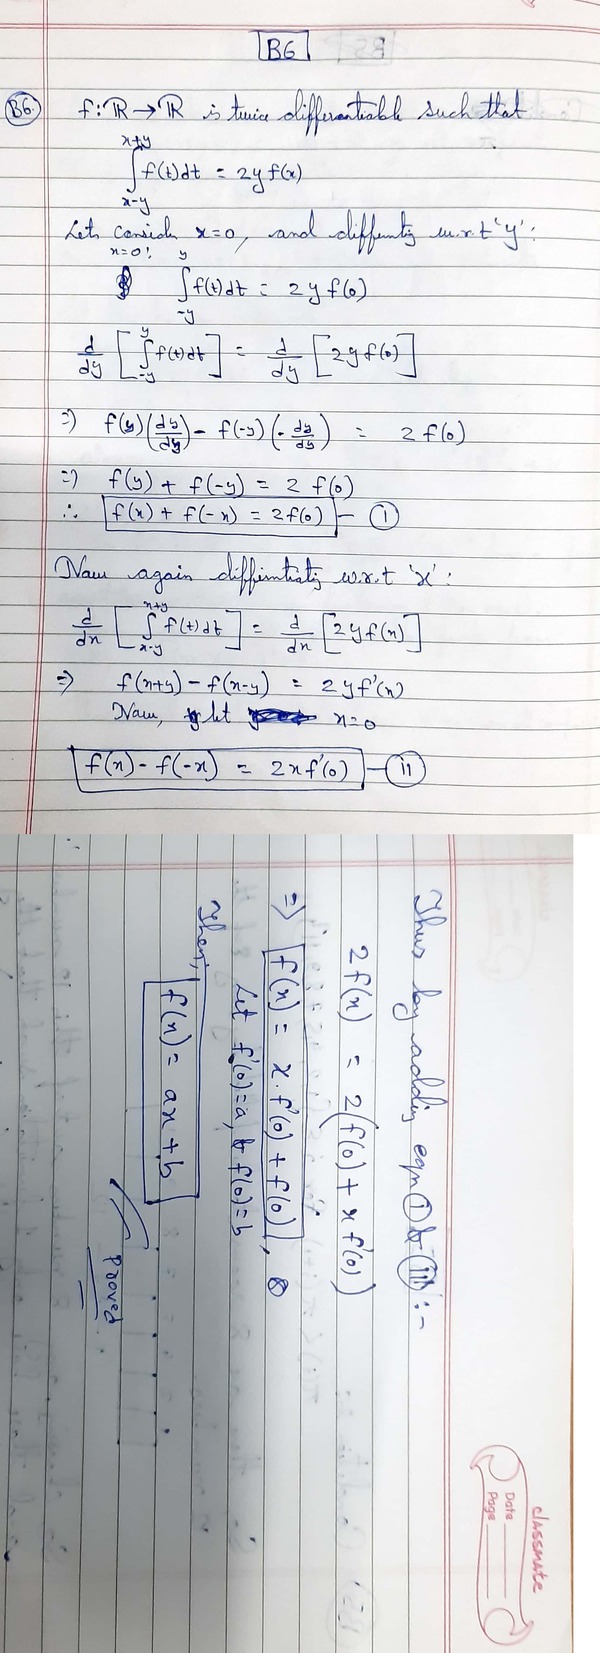 B6
B6. f: ℝ → ℝ is twice differentiable such that
∫_{x-y}^{x+y} f(t)dt = 2y f(x)
Lets consider x=0, and differentiatig w.r.t 'y':
x=0: ∫_{-y}^{y} f(t)dt = 2y f(0)
d/dy [∫_{-y}^{y} f(t)dt] = d/dy [2y f(0)]
=> f(y)(dy/dy) - f(-y)(-dy/dy) = 2f(0)
=> f(y) + f(-y) = 2 f(0)
∴ f(x) + f(-x) = 2f(0) - (i)
Now again differentiatig w.r.t 'x':
d/dx [∫_{x-y}^{x+y} f(t)dt] = d/dx [2y f(x)]
=> f(x+y) - f(x-y) = 2y f'(x)
Now, let x=0
f(x) - f(-x) = 2x f'(0) - (ii)
Thus by addig eqn (i) & (ii) :-
2f(x) = 2(f(0) + x f'(0))
=> f(x) = x. f'(0) + f(0),
Let f'(0)=a, & f(0)=b
Then,
f(x) = ax + b
Proved
classmate
Date
Page